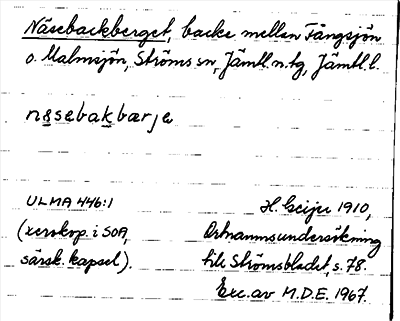 Näsebackberget, backe mellan Fångsjön
o. Malmsjön, Ströms sn, Jämtl. n. tg, Jämtl. l.
nasebakbærje
ULMA 446:1 H. Geijer 1910,
(xerokop. i SOA, Ortnamnsundersökning
särsk. kapsel). till Strömsbladet, s. 78.
Exc. av M.D.E. 1967.